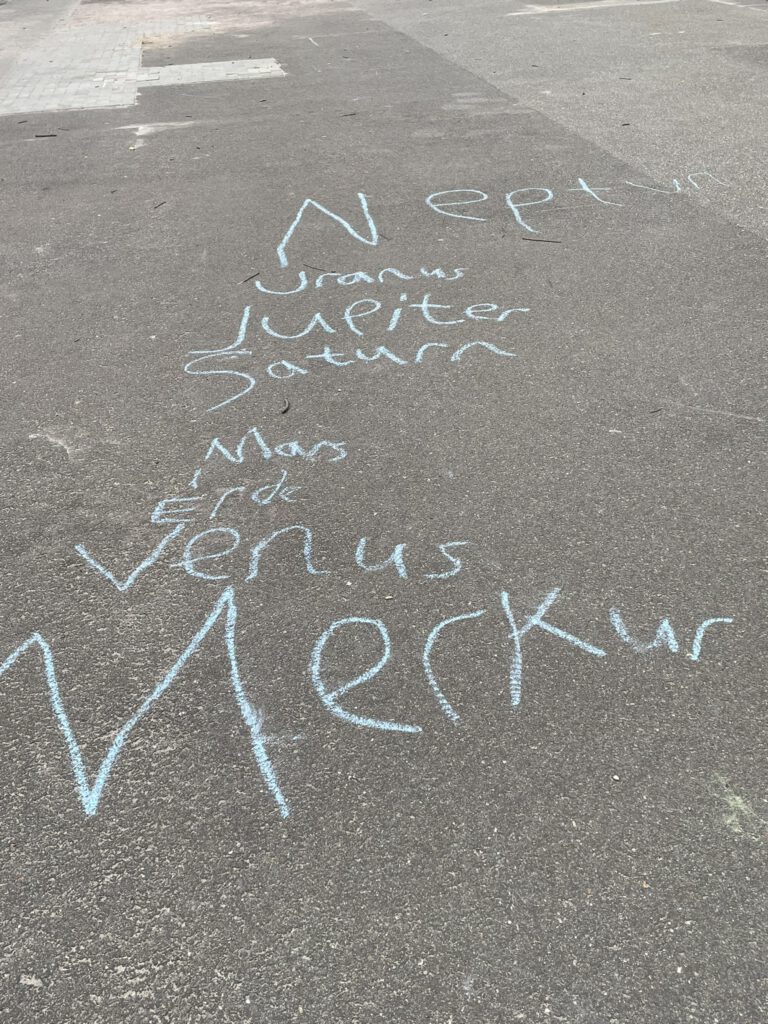 Neptun
Uranus
Jupiter
Saturn
Mars
Erde
Venus
Merkur